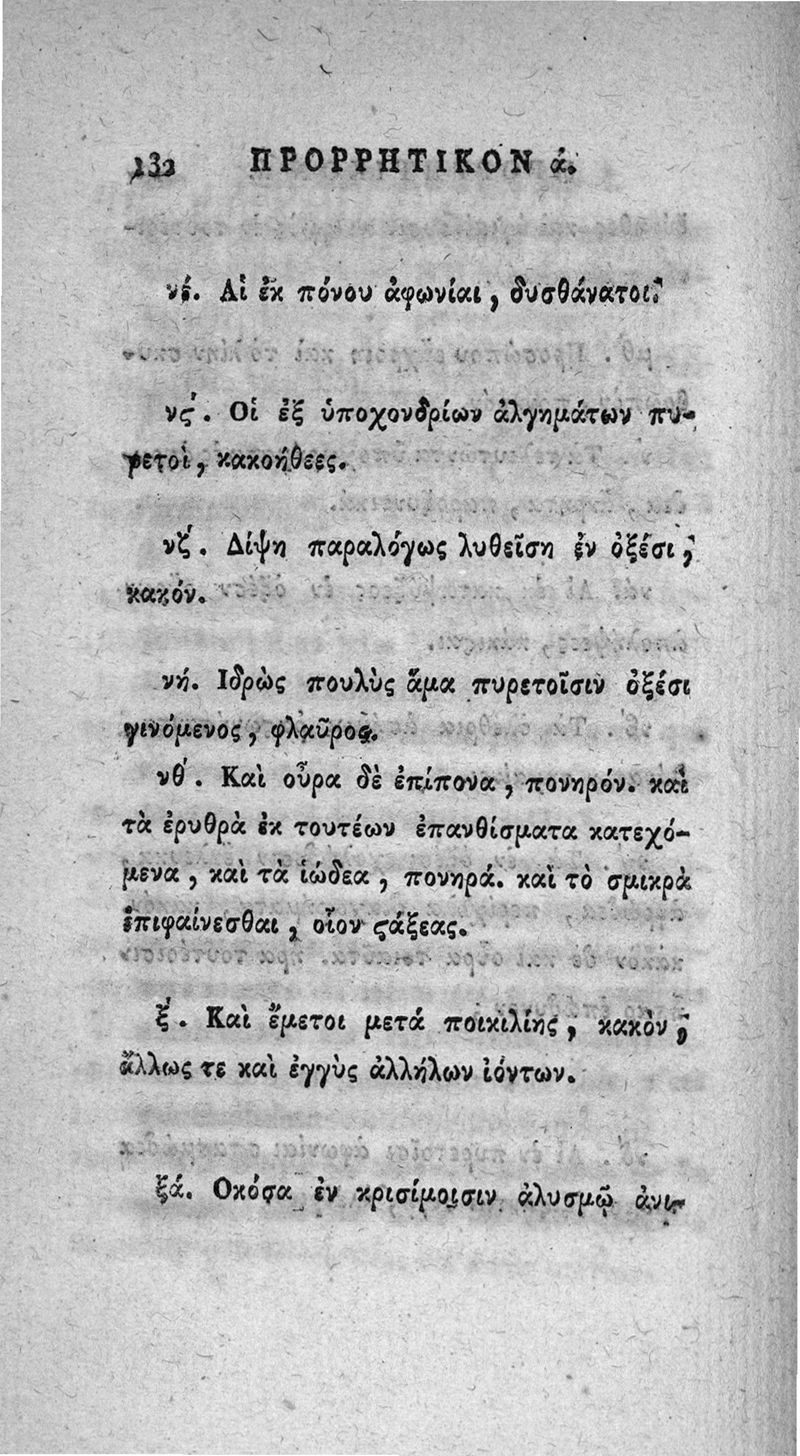 132 ΠΡΟΡΡΗΤΙΚΟΝ ά.
νέ. Αἱ ἐκ πόνου ἀφωνίαι, δυσθάνατοι.
νϛ´. Οἱ ἐξ ὑποχονδρίων ἀλγημάτων πυ-
ρετοὶ, κακοήθεες.
νζ´. Δίψη παραλόγως λυθεῖση ἐν ὀξέσι,
κακόν.
νή. Ιδρὼς πουλὺς ἅμα πυρετοῖσιν ὀξέσι
γινόμενος, φλαῦρος.
νθ´. Καὶ οὖρα δὲ ἐπίπονα, πονηρόν. καὶ
τὰ ἐρυθρὰ ἐκ τουτέων ἐπανθίσματα κατεχό-
μενα, καὶ τὰ ἰώδεα, πονηρά. καὶ τὸ σμικρὰ
ἐπιφαίνεσθαι, οἷον ϛάξεας.
ξ´. Καὶ ἔμετοι μετά ποικιλίης, κακὸν,
ἄλλως τε καὶ ἐγγὺς ἀλλήλων ἰόντων.
ξά. Οκόσα ἐν κρισίμοισιν ἀλυσμῷ ἀνι-